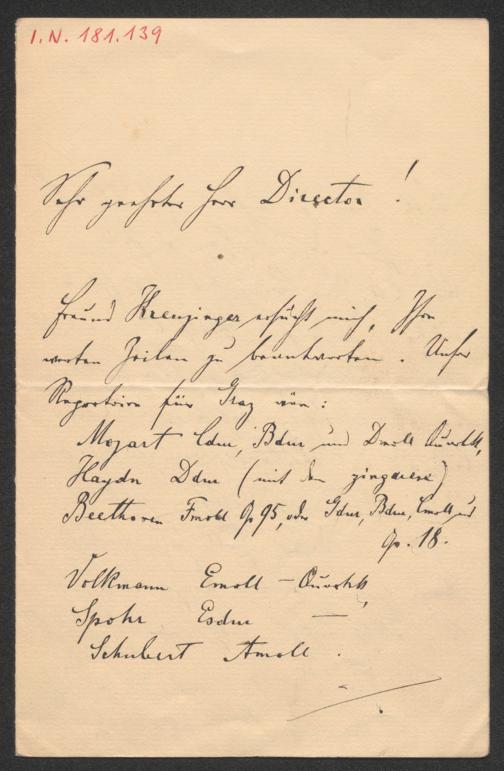 I.N. 181.139
Sehr geehrter Herr Director !
Freund Kreuzinger ersucht mich, Ihre
werten Zeilen zu beantworten. Unser
Repertoire für Graz wäre :
Mozart Cdur, Bdur und Dmoll Quartett,
Haydn Ddur (mit dem zingarese)
Beethoven Fmoll Op 95, oder Gdur, Bdur, Cmoll aus
Op. 18.
Volkmann Emoll – Quartett,
Spohr Esdur —
Schubert Amoll .